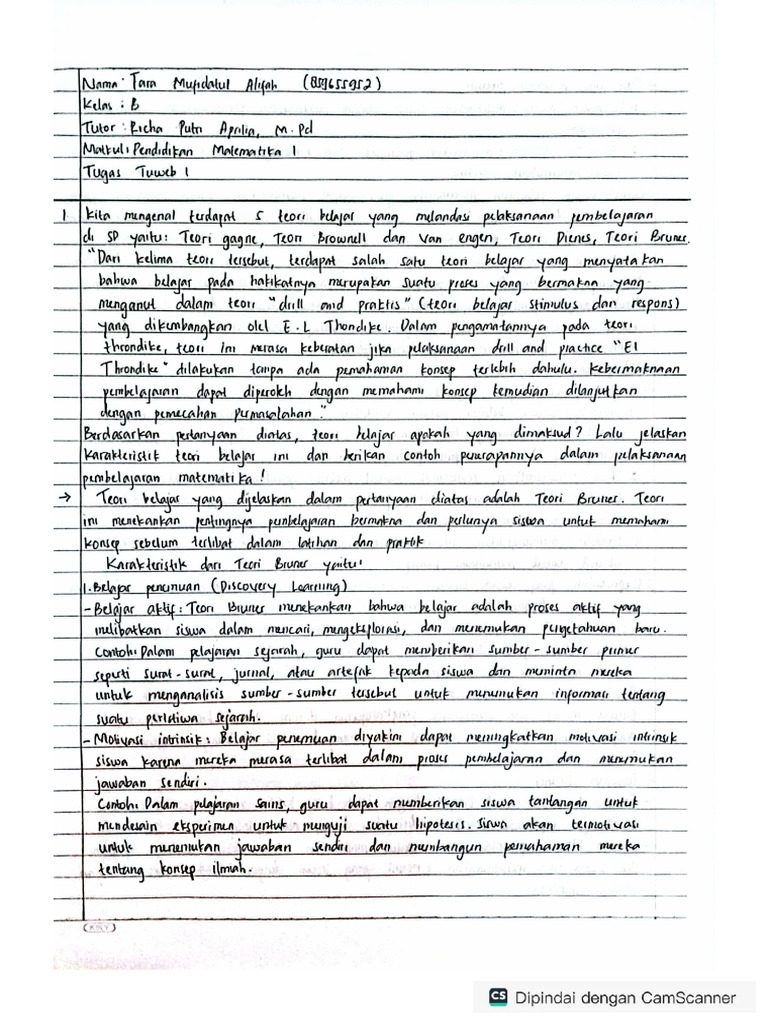 Nama : Tara Mufidatul Alifah (859655952)
Kelas : B
Tutor : Richa Putri Aprilia, M. Pd
Matkul : Pendidikan Matematika 1
Tugas Tuweb 1
1. Kita mengenal terdapat 5 teori belajar yang melandasi pelaksanaan pembelajaran
di SD yaitu: Teori gagne, Teori Brownell dan Van engen, Teori Dienes, Teori Bruner.
"Dari kelima teori tersebut, terdapat salah satu teori belajar yang menyatakan
bahwa belajar pada hakikatnya merupakan suatu proses yang bermakna yang
menganut dalam teori "drill and praktis" (teori belajar stimulus dan respons)
yang dikembangkan olel E.L Thondike. Dalam pengamatannya pada teori
throndike, teori ini merasa keberatan jika pelaksanaan drill and practice "El
Throndike" dilakukan tanpa ada pemahaman konsep terlebih dahulu. Kebermaknaan
pembelajaran dapat diperoleh dengan memahami konsep kemudian dilanjutkan
dengan pemecahan permasalahan."
Berdasarkan pertanyaan diatas, teori belajar apakah yang dimaksud? Lalu jelaskan
karakteristik teori belajar ini dan berikan contoh penerapannya dalam pelaksanaan
pembelajaran matematika!
→ Teori belajar yang dijelaskan dalam pertanyaan diatas adalah Teori Bruner. Teori
ini menekankan pentingnya pembelajaran bermakna dan perlunya siswa untuk memahami
konsep sebelum terlibat dalam latihan dan praktik
Karakteristik dari Teori Bruner yaitu:
1. Belajar penemuan (Discovery Learning)
- Belajar aktif : Teori Bruner menekankan bahwa belajar adalah proses aktif yang
melibatkan siswa dalam mencari, mengeksplorasi, dan menemukan pengetahuan baru.
Contoh: Dalam pelajaran sejarah, guru dapat memberikan sumber-sumber primer
seperti surat-surat, jurnal, atau artefak kepada siswa dan meminta mereka
untuk menganalisis sumber-sumber tersebut untuk menemukan informasi tentang
suatu peristiwa sejarah.
- Motivasi intrinsik : Belajar penemuan diyakini dapat meningkatkan motivasi intrinsik
siswa karena mereka merasa terlibat dalam proses pembelajaran dan menemukan
jawaban sendiri.
Contoh: Dalam pelajaran sains, guru dapat memberikan siswa tantangan untuk
mendesain eksperimen untuk menguji suatu hipotesis. Siswa akan termotivasi
untuk menemukan jawaban sendiri dan membangun pemahaman mereka
tentang konsep ilmiah.
KIKY
CS Dipindai dengan CamScanner